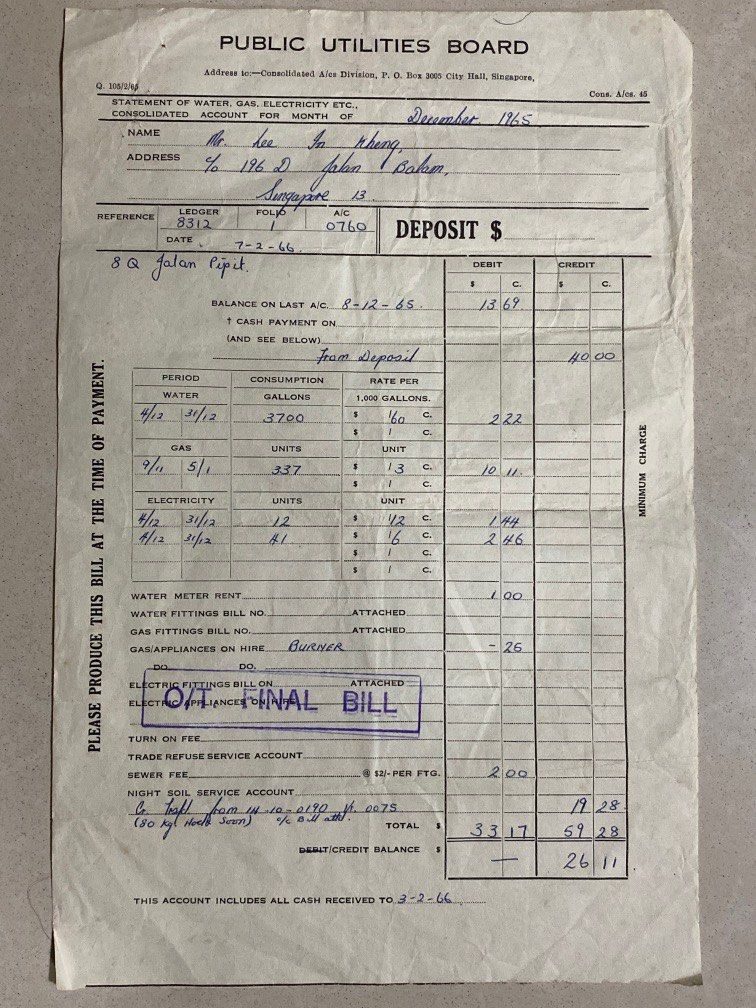 PUBLIC UTILITIES BOARD
Address to:—Consolidated A/cs Division, P. O. Box 3005 City Hall, Singapore,
Q. 105/2/65
Cons. A/cs. 45
STATEMENT OF WATER, GAS, ELECTRICITY ETC.,
CONSOLIDATED ACCOUNT FOR MONTH OF December 1965
NAME Mr. Lee In Kheng,
ADDRESS c/o 196 D Jalan Balam,
Singapore 13
REFERENCE LEDGER 8312 FOLIO 1 A/C 0760
DATE 7-2-66.
DEPOSIT $
8 Q Jalan Pipit.
DEBIT CREDIT
$ C. $ C.
BALANCE ON LAST A/C. 8-12-65. 13 69
† CASH PAYMENT ON
(AND SEE BELOW)
From Deposit 40 00
PERIOD CONSUMPTION RATE PER
WATER GALLONS 1,000 GALLONS.
4/12 31/12 3700 $ /60 C. 2 22
$ / C.
GAS UNITS UNIT
9/11 5/1 337 $ /3 C. 10 11
$ / C.
ELECTRICITY UNITS UNIT
4/12 31/12 12 $ /12 C. 1 44
4/12 31/12 41 $ /6 C. 2 46
$ / C.
$ / C.
WATER METER RENT 1 00
WATER FITTINGS BILL NO. ATTACHED
GAS FITTINGS BILL NO. ATTACHED
GAS/APPLIANCES ON HIRE BURNER - 25
DO. DO.
ELECTRIC FITTINGS BILL ON ATTACHED
ELECTRIC APPLIANCES ON HIRE
O/T. FINAL BILL
TURN ON FEE
TRADE REFUSE SERVICE ACCOUNT
SEWER FEE @ $2/- PER FTG. 2 00
NIGHT SOIL SERVICE ACCOUNT
Cr. Trsf. from IN-10-0190 0075 19 28
(80 Kg. Soon) o/c Bill att.
TOTAL $ 33 17 59 28
DEBIT/CREDIT BALANCE $ — 26 11
THIS ACCOUNT INCLUDES ALL CASH RECEIVED TO 3-2-66
PLEASE PRODUCE THIS BILL AT THE TIME OF PAYMENT.
MINIMUM CHARGE